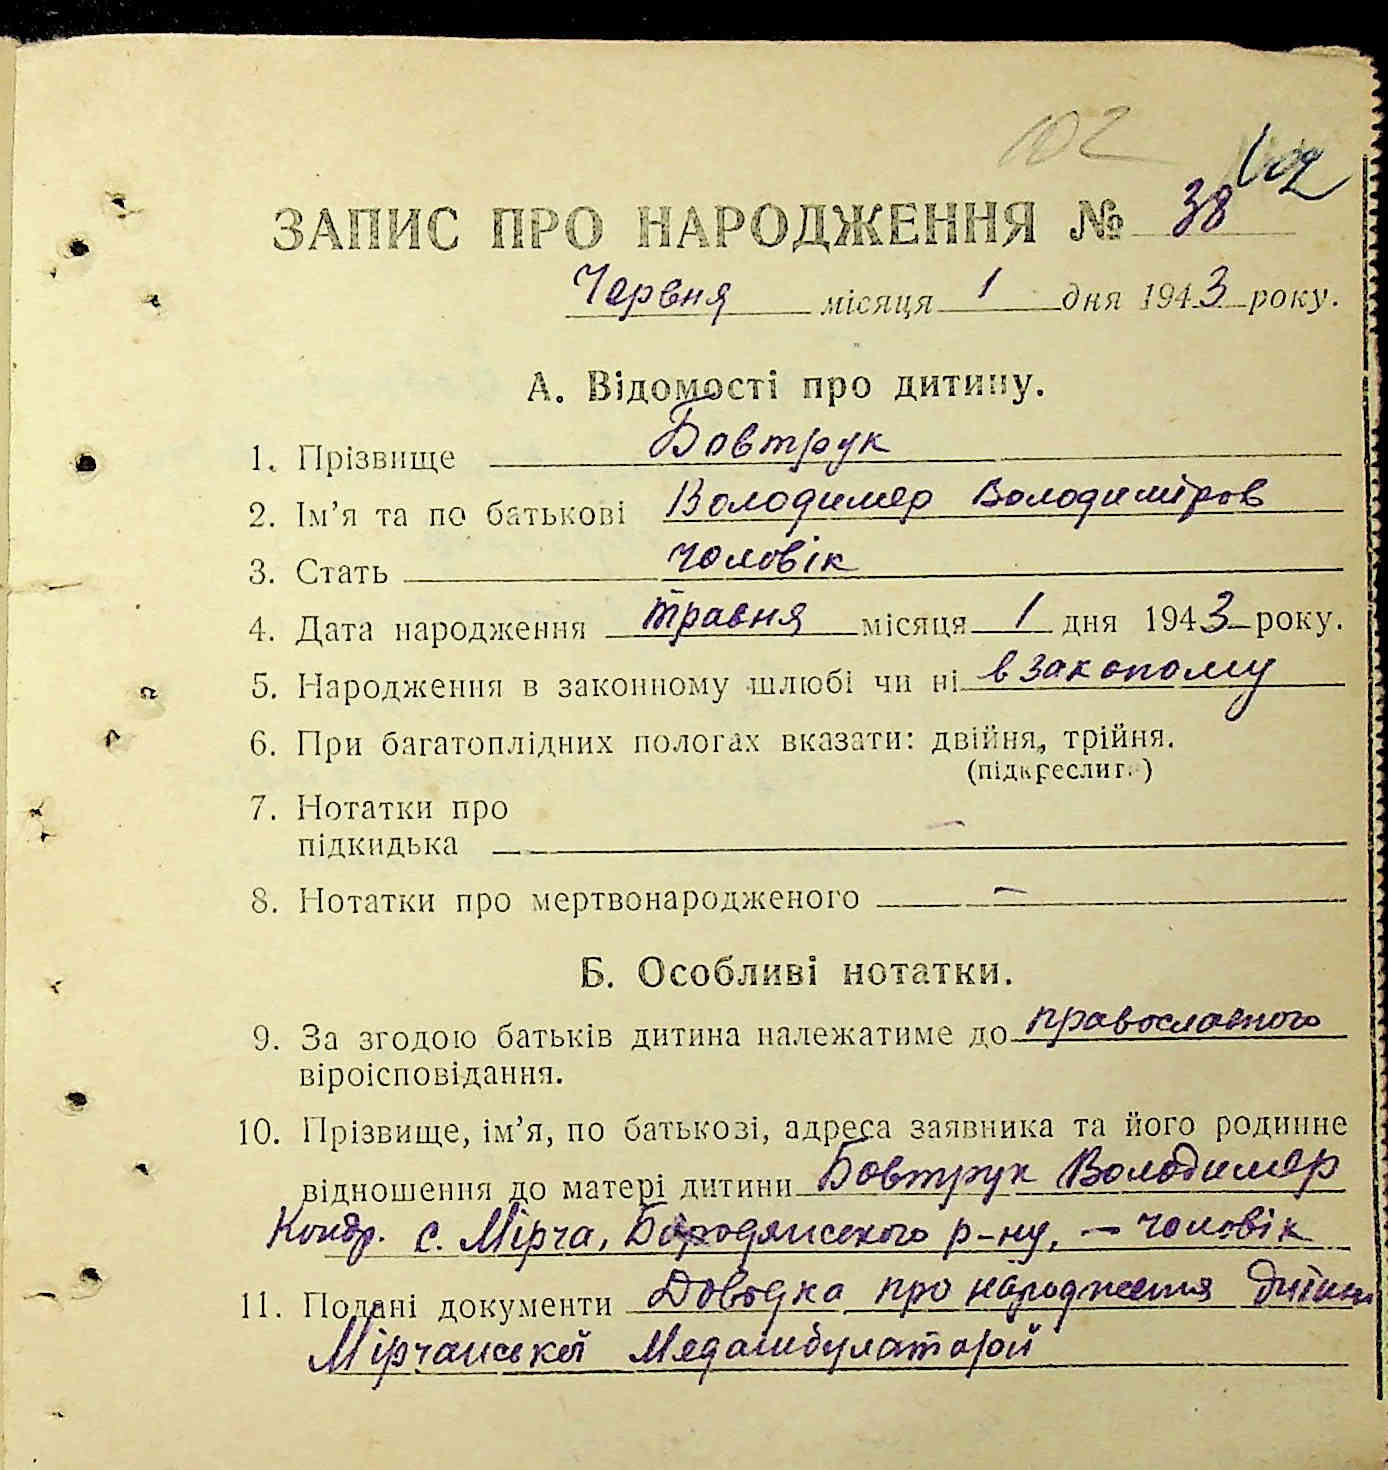 102
102
ЗАПИС ПРО НАРОДЖЕННЯ № 38
Червня місяця 1 дня 1943 року.
А. Відомості про дитину.
1. Прізвище Бовтрук
2. Ім'я та по батькові Володимер Володиміров
3. Стать чоловік
4. Дата народження травня місяця 1 дня 1943 року.
5. Народження в законному шлюбі чи ні в законому
6. При багатоплідних пологах вказати: двійня, трійня.
(підкреслити)
7. Нотатки про
підкидька —
8. Нотатки про мертвонародженого —
Б. Особливі нотатки.
9. За згодою батьків дитина належатиме до православного
віроісповідання.
10. Прізвище, ім'я, по батькові, адреса заявника та його родинне
відношення до матері дитини Бовтрук Володимер
Кондр. с. Мірча, Бородянського р-ну, — чоловік
11. Подані документи Доводка про народження дитини
Мірчанської Медамбулаторой